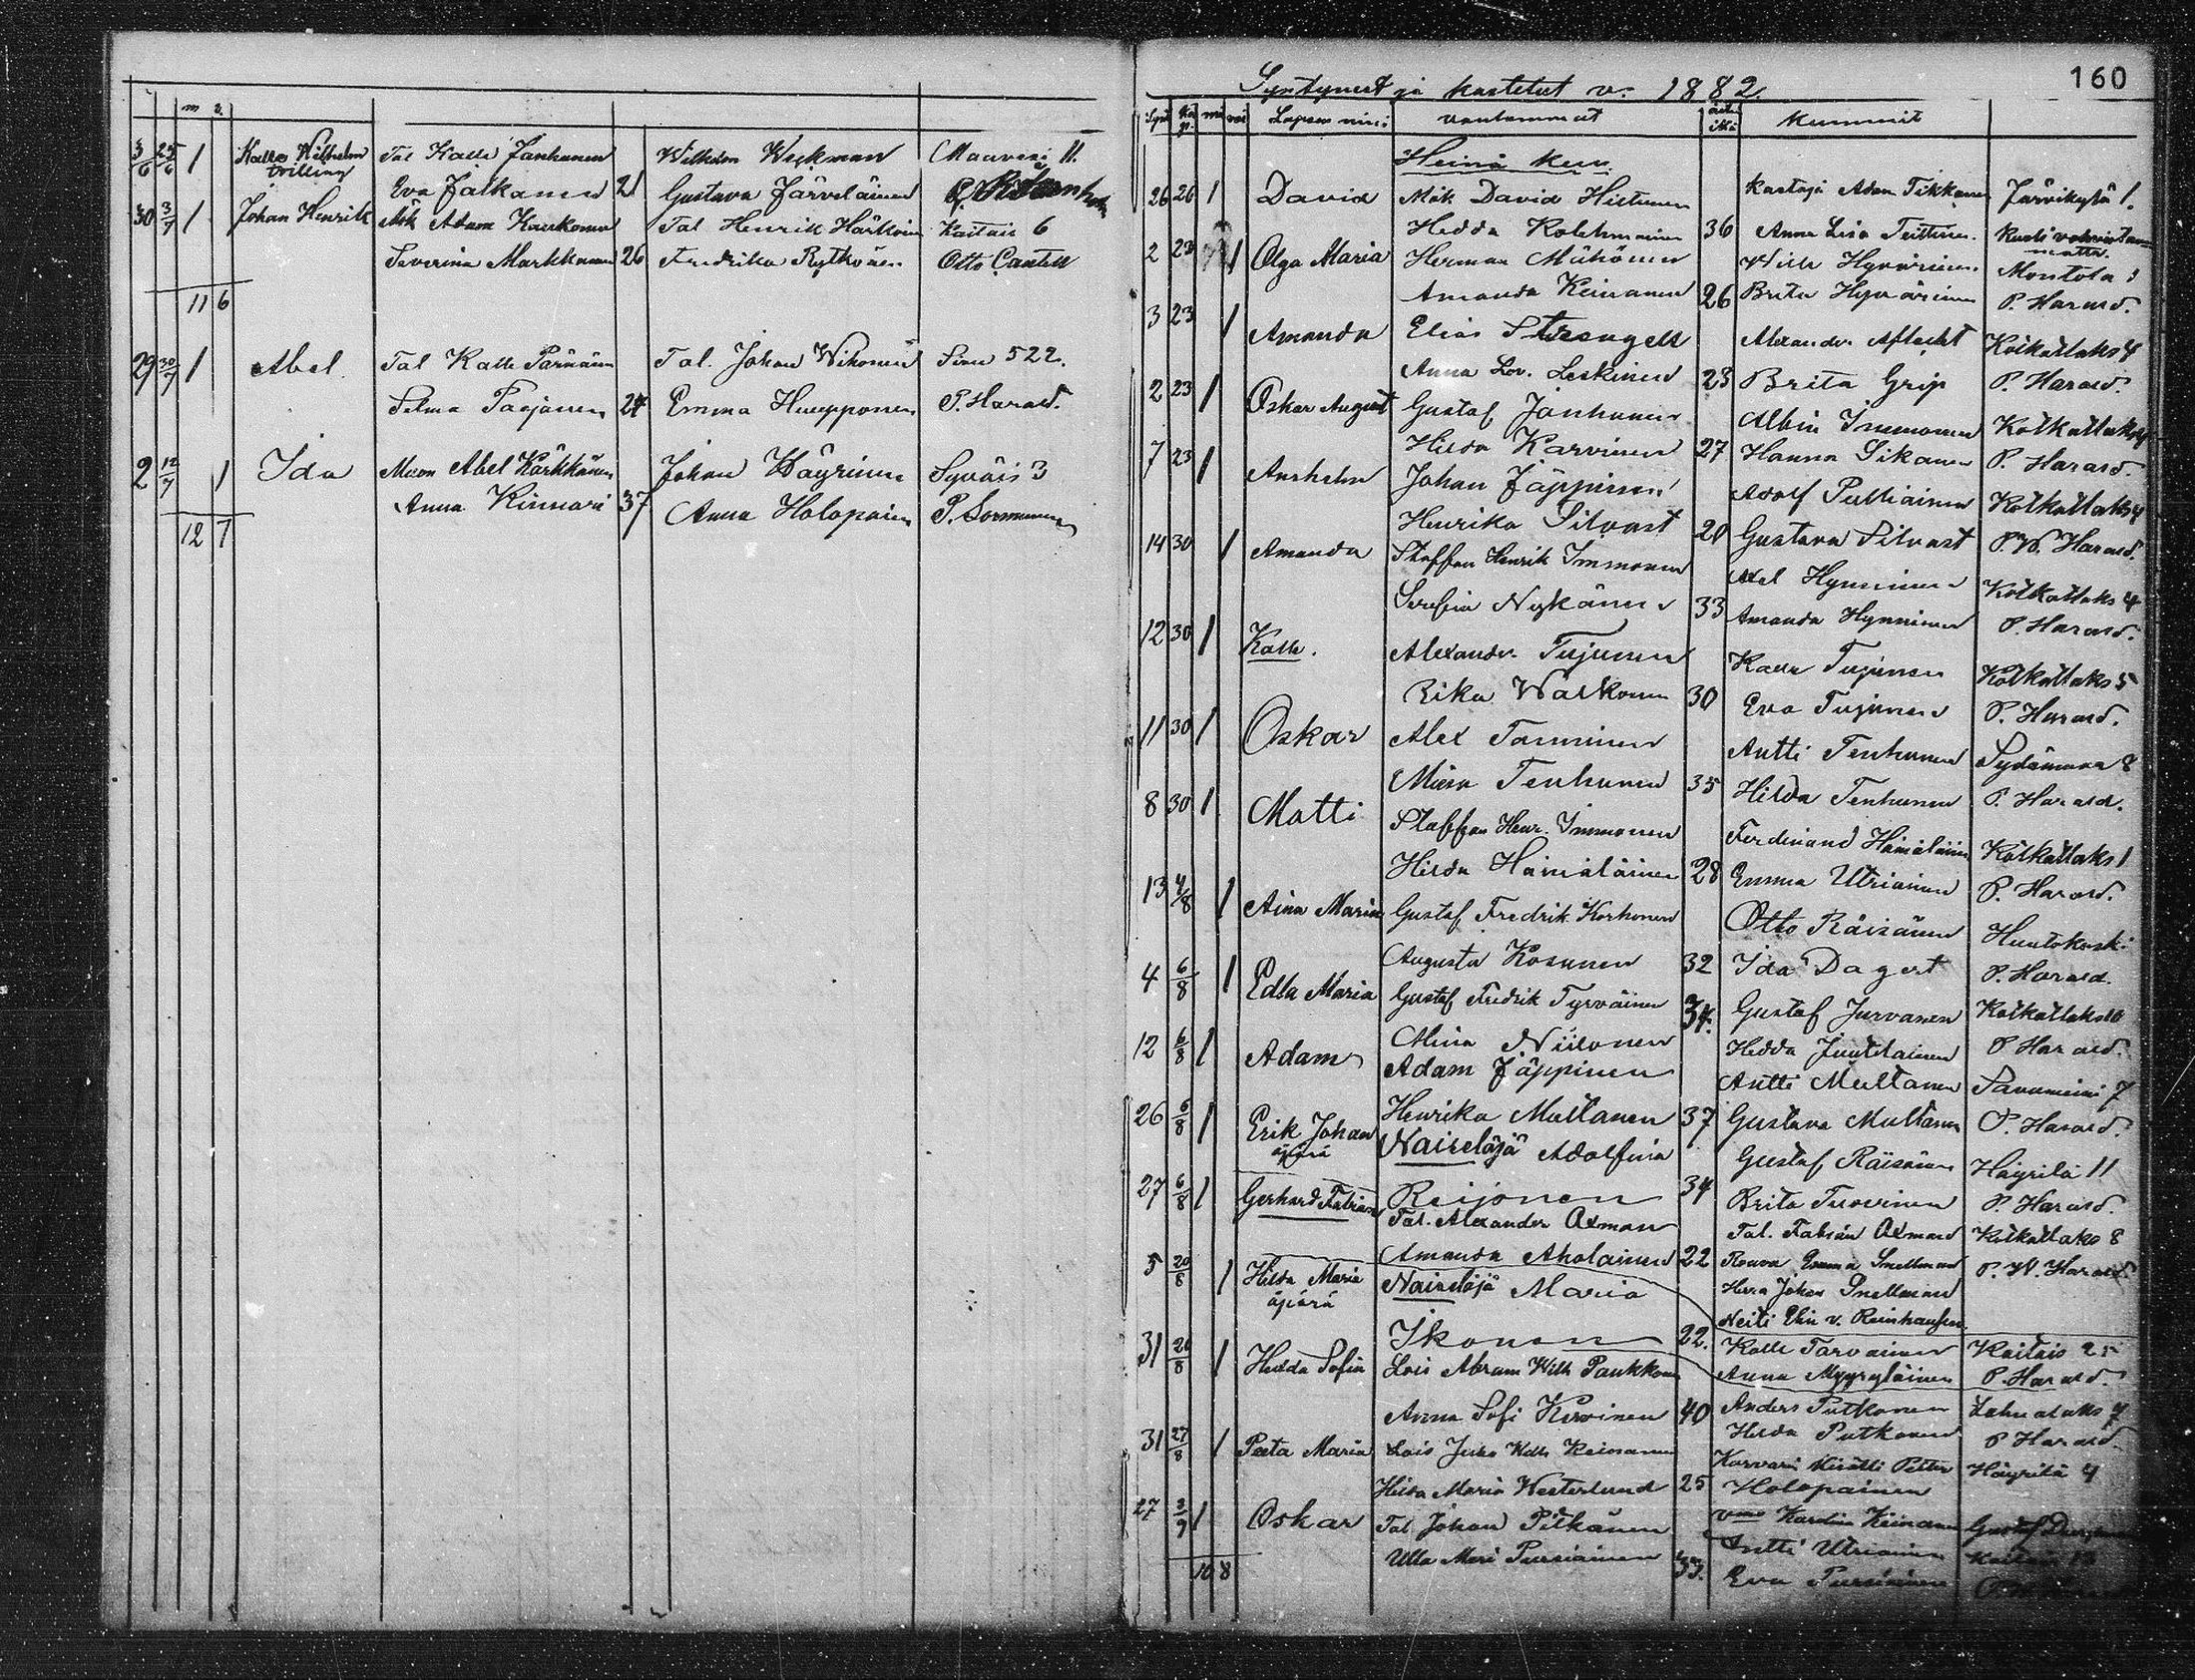 m v.
3/6 25/6 1 Kalle Wilhelm Tal Kalle Janhunen Wilhelm Wickman Mauvesi 11.
Eva Jalkanen 21 Gustava Järveläinen
30 3/7 1 Johan Henrik Mök Adam Kaukonen Tal Henrik Härkönen Kaitais 6
Severina Markkanen 26 Fredrika Rytkönen Otto Cantell
11 6
29 30/7 1 Abel Tal Kalle Parnänen Tal. Johan Wikonen Sivu 522.
Selma Paajanen 24 Emma Huupponen P. Harald.
2 12/7 1 Ida Muon Abel Kärkkäinen Johan Häyrinen Syväis 3
Anna Kinnari 37 Anna Holopainen P. Sormunen
12 7
160
Syntyneet ja kastetut v. 1882.
Synt Ka mi vai Lapsen nimi vanhemmat äidin ikä Kummit
Heinä kuu
26 26 1 David Mök. David Hiltunen kastaja Adam Tikkanen Järvikylä 1.
Hedda Kolehmainen 36 Anna Lisa Teittinen
2 23 1 Olga Maria Herman Miihönen Wille Hyvärinen Montola 1
Amanda Keinanen 26 Brita Hyvärinen P. Harald.
3 23 1 Amanda Elias Strengell Alexander Aflecht Kotkatlaks 4
Anna Lov. Leskinen 23 Brita Grip P. Harald.
2 23 1 Oskar August Gustaf Janhunen Albin Immonen Kotkatlaks 4
Hilda Karvinen 27 Hanna Sikanen P. Harald.
7 23 1 Anshelm Johan Jäppinen Adolf Pulliainen Kotkatlaks 4
Henrika Silvast 20 Gustava Silvast P. W. Harald.
14 30 1 Amanda Staffan Henrik Immonen Axel Hynninen Kotkatlaks 4
Serefia Nykänen 33 Amanda Hynninen P. Harald.
12 30 1 Kalle. Alexander Tujunen Kalle Tujunen Kotkatlaks 5
Rika Walkonen 30 Eva Tujunen P. Harald.
11 30 1 Oskar Alex Tanninen Antti Tenhunen Sydänmaa 8
Miina Tenhunen 35 Hilda Tenhunen P. Harald.
8 30 1 Matti Staffan Henr. Immonen Ferdinand Hämäläinen Kotkatlaks 1
Hilda Hämäläinen 28 Emma Utriainen P. Harald.
13 4/8 1 Aina Maria Gustaf Fredrik Korhonen Otto Räisänen Huutokoski
Augusta Kosunen 32 Ida Dagert P. Harald.
4 6/8 1 Edla Maria Gustaf Fredrik Tyrväinen 34. Gustaf Jurvanen Kotkatlaks 10
Miina Niilonen Hedda Juutilainen P. Harald.
12 6/8 1 Adam Adam Jäppinen Antti Multanen Savuniemi 7
Henrika Multanen 37 Gustava Multanen P. Harald.
26 6/8 1 Erik Johan Naiselöjä Adolfina Gustaf Räisänen Häyrilä 11
äpärä
Reijonen 34 Brita Turvinen P. Harald.
27 6/8 1 Gerhard Fabian Tal. Alexander Axman Tal. Fabian Axman Kotkatlaks 8
Amanda Aholainen 22 Rouva Emma Snellman P. W. Harald.
5 20/8 1 Hilda Maria Naiselöjä Maria Herra Johan Snellman
äpärä Neiti Elin v. Reinhausen.
Ikonen 22. Kalle Tarvainen Kaitais 25
31 20/8 1 Hedda Sofia Lois Abram Wilh Paukkonen Anna Myyryläinen P. Harald.
Anna Sofi Kirvinen 40 Anders Putkonen
31 27/8 1 Peeta Maria Lois Juho Wilh Keinanen Hilda Putkonen P Harald.
Hilda Maria Westerlund 25 Karvari Kisälli Petter Häyrilä 4
Holopainen
27 3/9 1 Oskar Tal. Johan Pitkänen Karolina Keinanen
Ulla Mari Pursiainen 33. Antti Utriainen
10 8 Eva Pursiainen